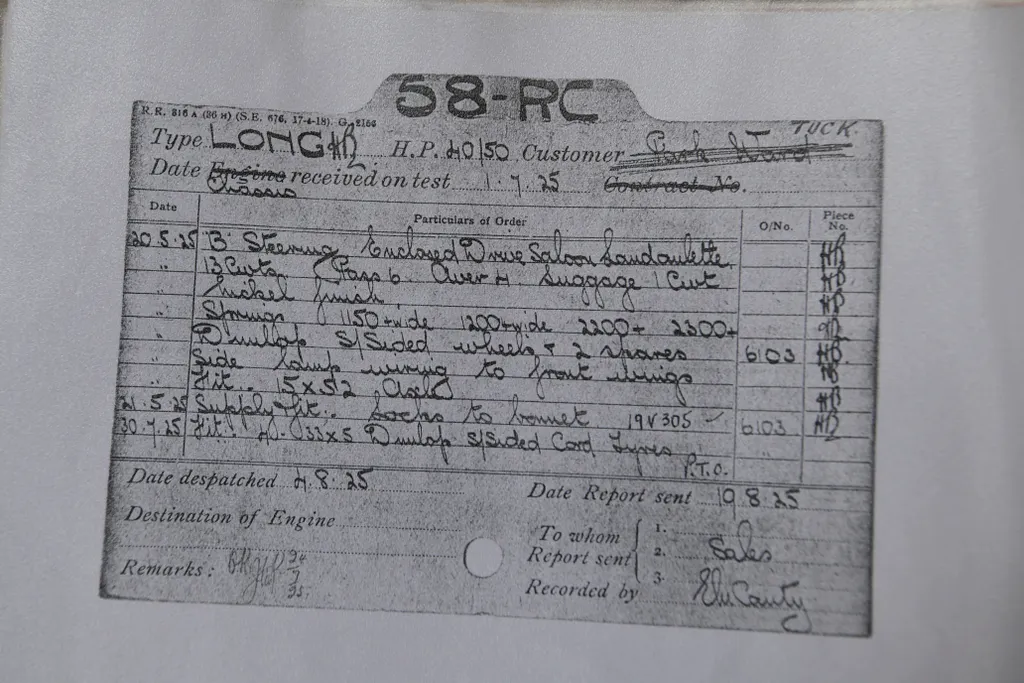 58-RC
R.R. 816 A (36 H) (S.E. 676, 17-4-18). G. 2166
TUCK.
Type LONG H.P. 40/50 Customer
Date Engine received on test 1.7.25 Contract No.
Chassis
Date Particulars of Order O/No. Piece No.
20.5.25 "B" Steering Enclosed Drive Saloon Landaulette
" 13 Cwts. Pass 6 Over 4 Luggage 1 Cwt
" Nickel finish
" Springs 1150+wide 1200+wide 2200+ 2300+
" Dunlop S/Sided wheels & 2 spares 6103
" Side lamp wiring to front wings
" Fit.. 15 x 52 Axle
21.5.25 Supply & fit.. Locks to bonnet 19V305 6103
30.7.25 Fit: 33x5 Dunlop S/Sided Cord Tyres
P.T.O.
Date despatched 4.8.25 Date Report sent 19.8.25
Destination of Engine
To whom Report sent 1.
2. Sales
3.
Remarks:
Recorded by